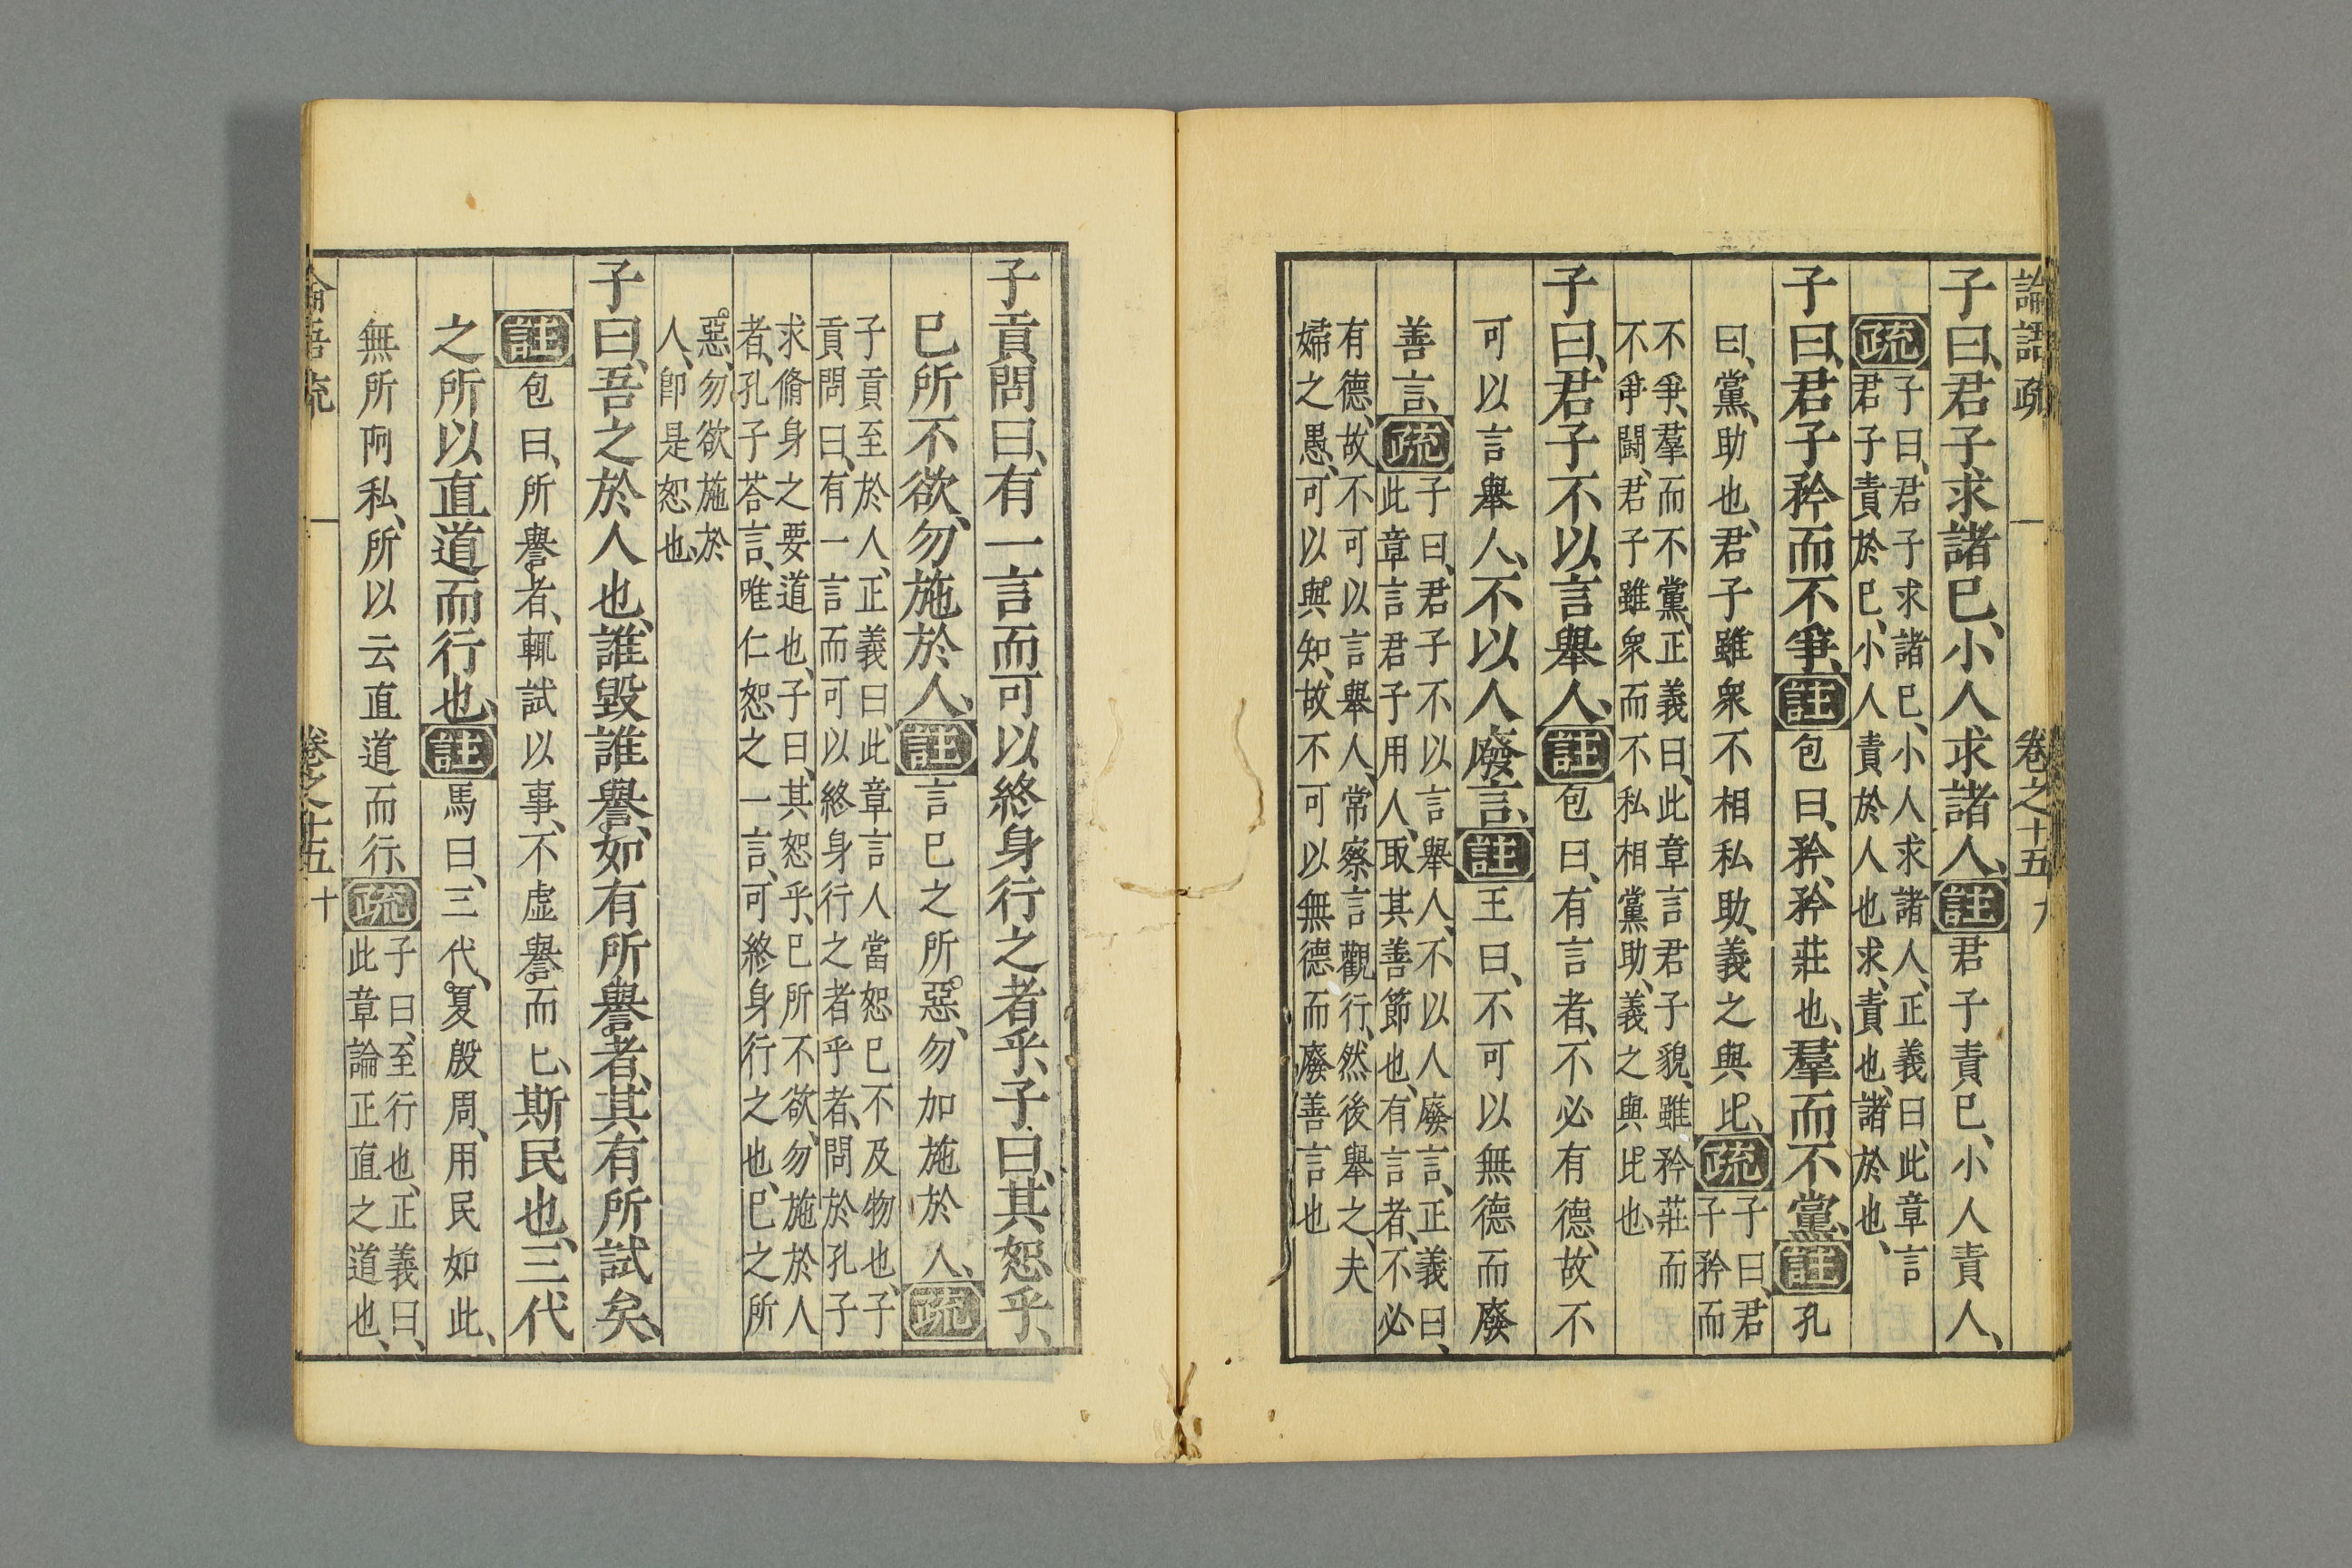 論語疏 卷之十五 九
子曰、君子求諸已、小人求諸人、註君子責已、小人責人、
疏子曰、君子求諸已、小人求諸人、正義曰、此章言
君子責於已、小人責於人也求、責也、諸於也、
子曰、君子矜而不爭、註包曰、矜、矜莊也、羣而不黨、註孔
曰、黨、助也、君子雖衆不相私助、義之與比、疏子曰、君
子矜而
不爭、羣而不黨、正義曰、此章言君子貌、雖矜莊而
不爭鬪、君子雖衆而不私相黨助、義之與比也、
子曰、君子不以言舉人、註包曰、有言者、不必有德、故不
可以言舉人、不以人廢言、註王曰、不可以無德而廢
善言、疏子曰、君子不以言舉人、不以人廢言、正義曰、
此章言君子用人、取其善節也、有言者、不必
有德、故不可以言舉人、常察言觀行、然後舉之、夫
婦之愚、可以與知、故不可以無德而廢善言也
子貢問曰、有一言而可以終身行之者乎、子曰、其恕乎、
已所不欲、勿施於人、註言已之所惡、勿加施於人、疏
子貢至於人、正義曰、此章言人當恕已不及物也、子
貢問曰、有一言而可以終身行之者乎者、問於孔子
求脩身之要道也、子曰、其恕乎、已所不欲、勿施於人
者、孔子荅言、唯仁恕之一言、可終身行之也、已之所
惡、勿欲施於
人、卽是恕也、
子曰、吾之於人也、誰毀誰譽、如有所譽者、其有所試矣、
註包曰、所譽者、輒試以事、不虛譽而已、斯民也、三代
之所以直道而行也、註馬曰、三代、夏殷周、用民如此、
無所阿私、所以云直道而行、疏子曰、至行也、正義曰、
此章論正直之道也、
論語疏 卷之十五 十